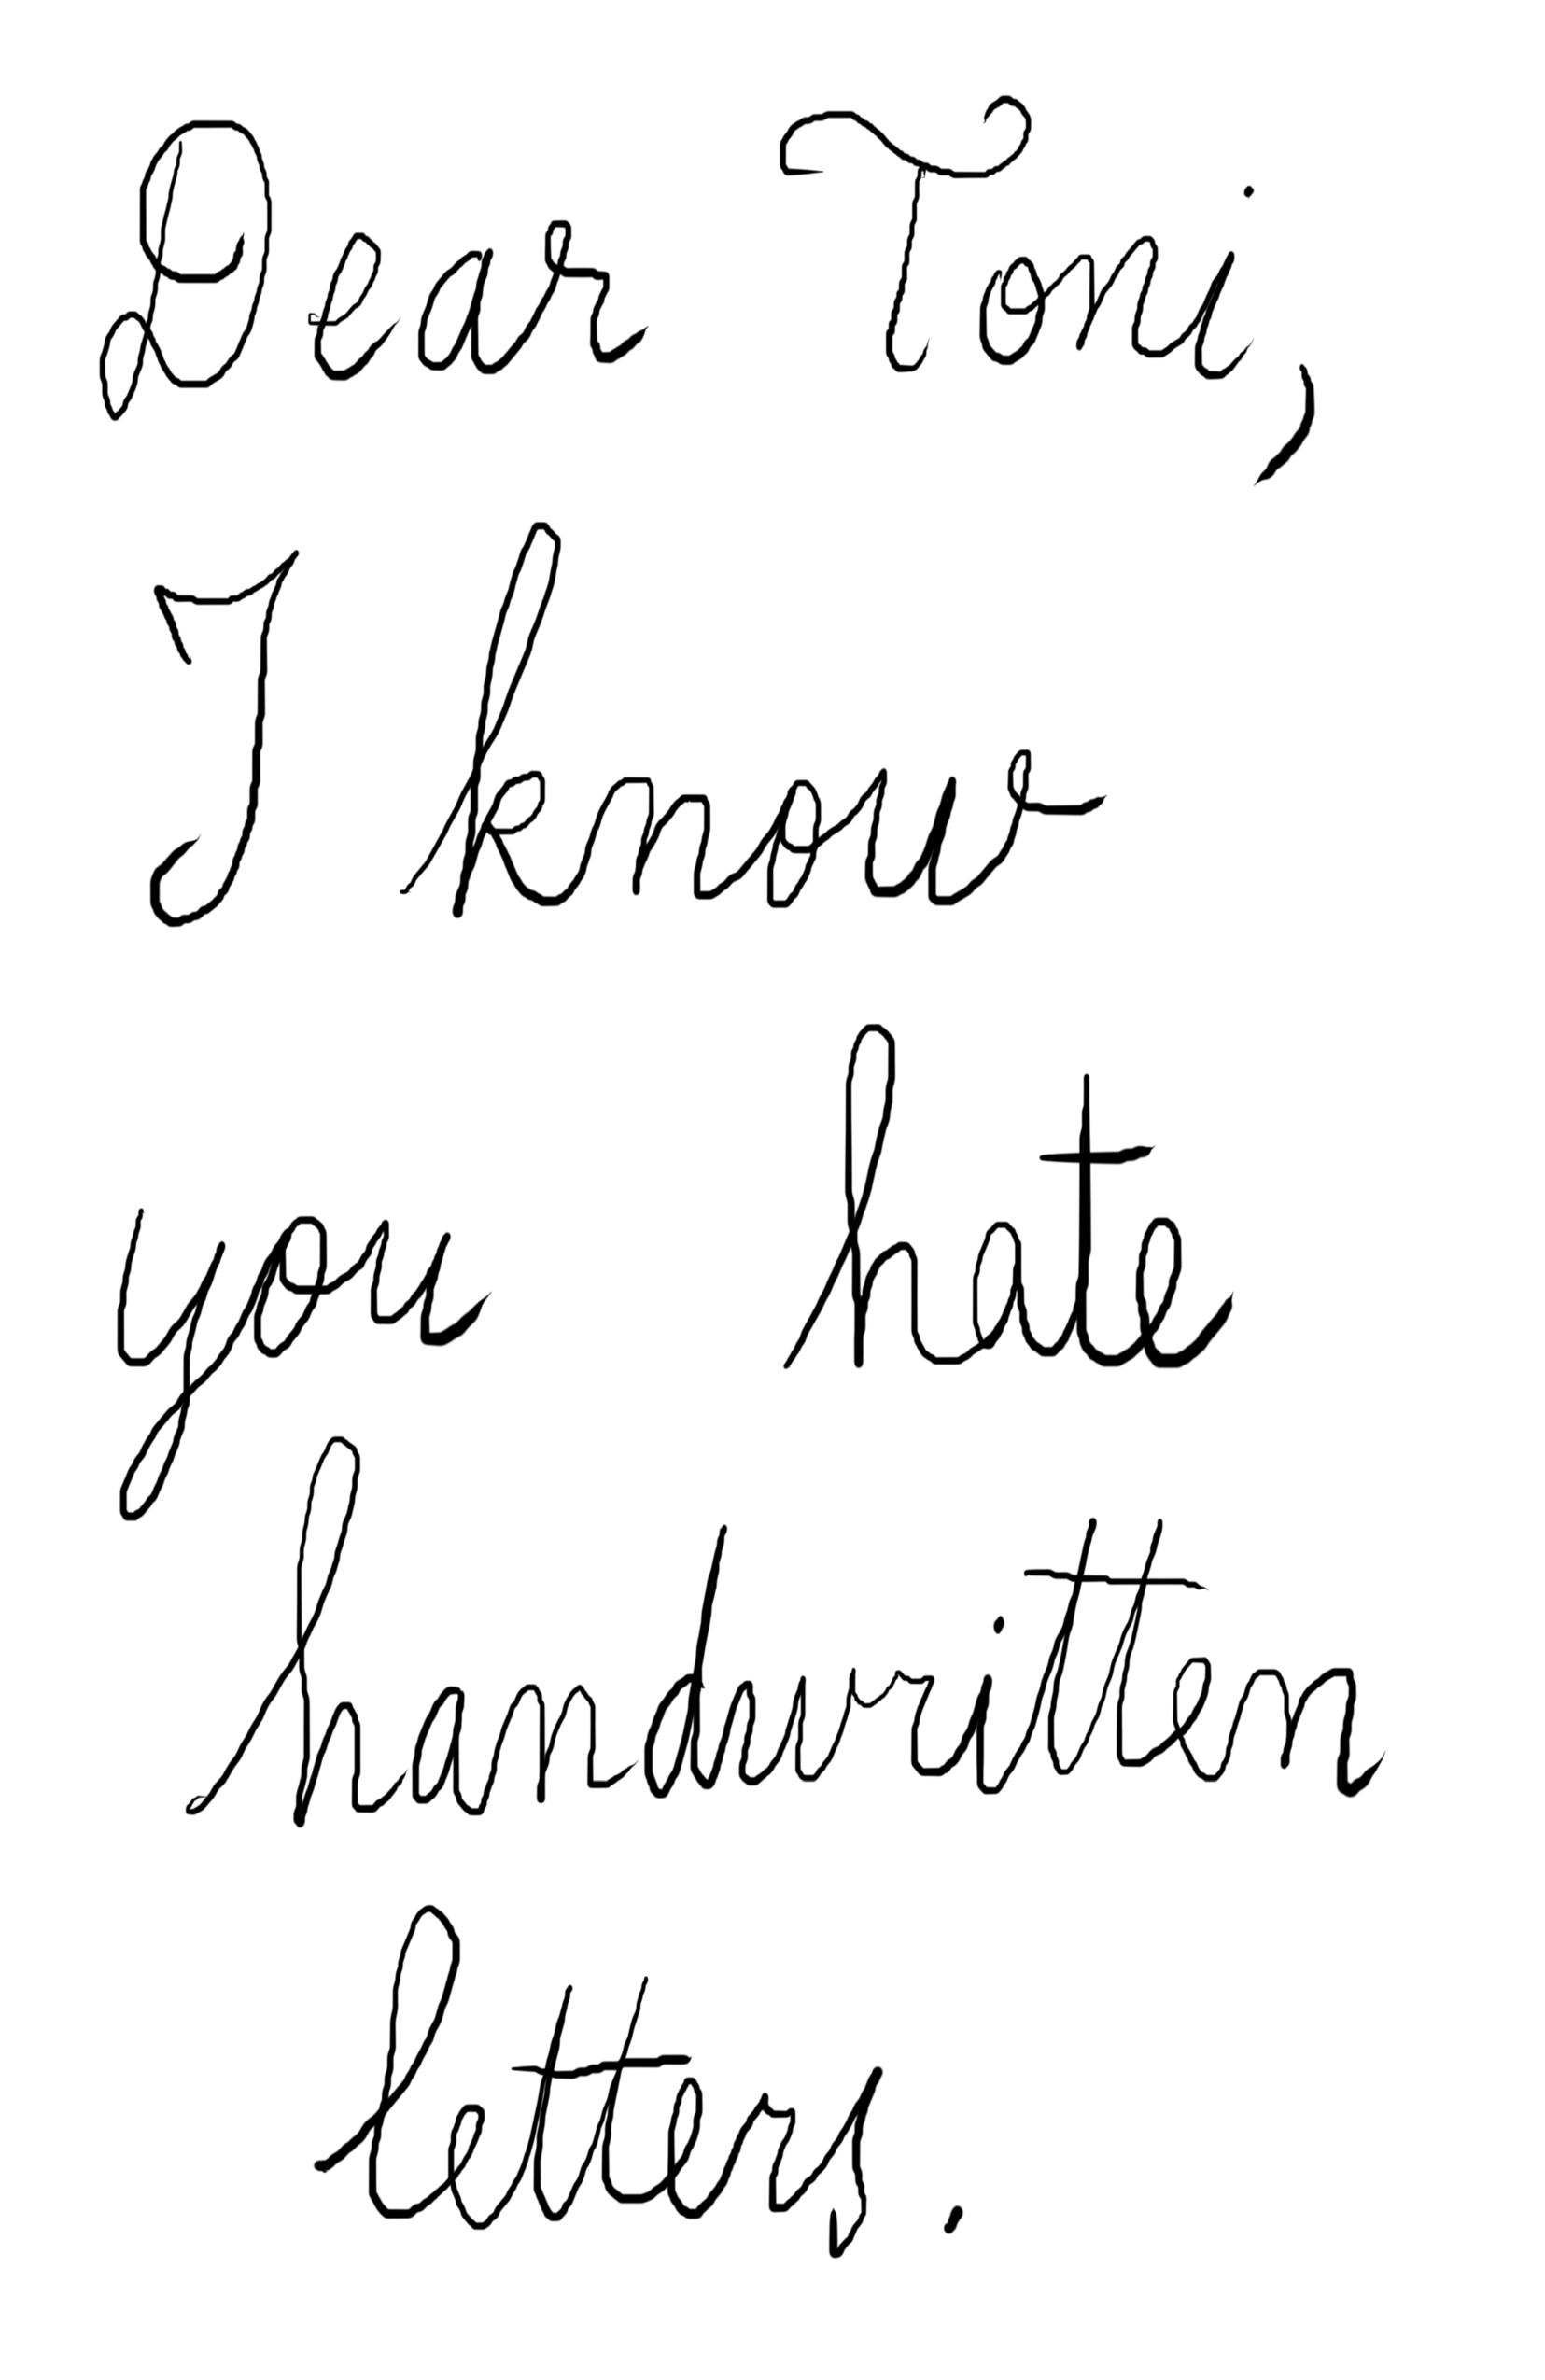 Dear Toni,
I know
you hate
handwritten
letters.